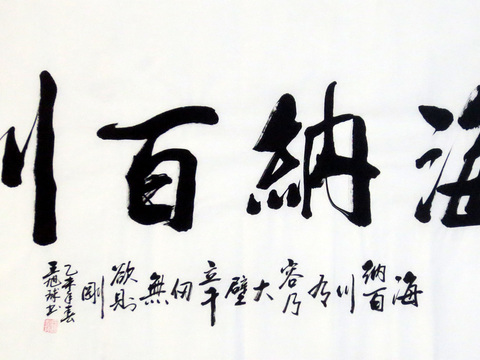 海納百川
海納百川有容乃大壁立千仞無欲則剛
乙未年春